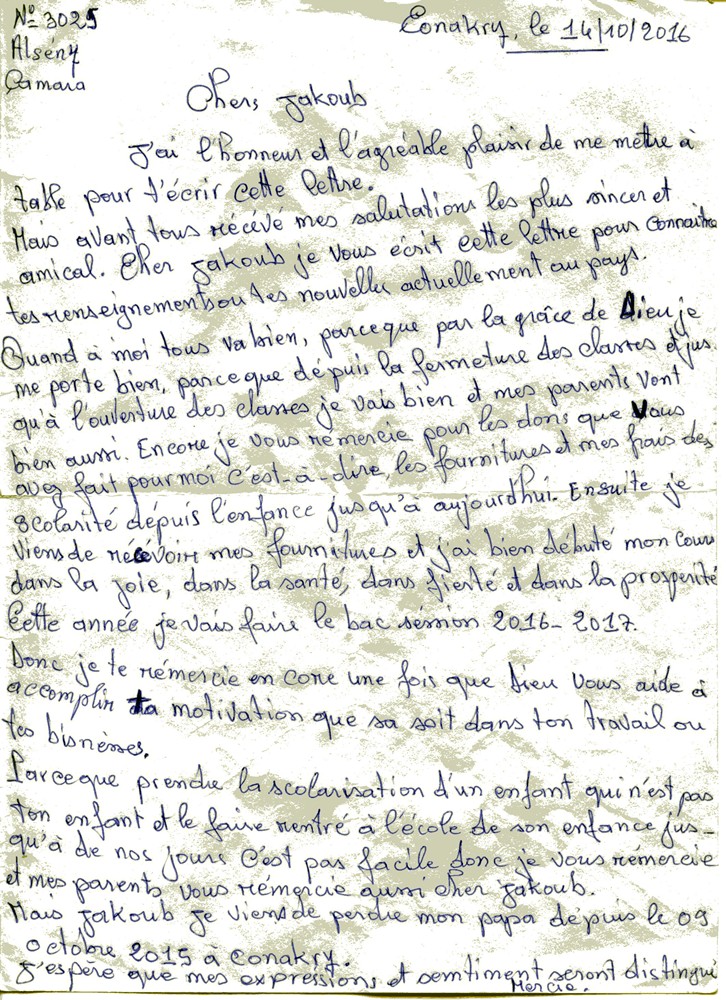 N° 3025
Alseny
Camara
Conakry, le 14/10/2016
Chers Jakoub
J'ai l'honneur et l'agréable plaisir de me metre à
table pour t'écrir cette lettre.
Mais avant tous récévé mes salutations les plus sincer et
amical. Cher Jakoub je vous écrit cette lettre pour connaitre
tes renseignements ou tes nouvelle actuellement au pays.
Quand à moi tous va bien, parceque par la grâce de Dieu je
me porte bien, parceque dépuis la fermeture des classes et jus
qu'à l'ouverture des classes je vais bien et mes parents vont
bien aussi. Encore je vous rémercie pour les dons que vous
avez fait pour moi c'est-à-dire, les fournitures et mes frais des
scolarité dépuis l'enfance jusqu'à aujourd'hui. Ensuite je
viens de récévoir mes fournitures et j'ai bien débuté mon cours
dans la joie, dans la santé, dans fierté et dans la prosperité
Cette année je vais faire le bac séssion 2016-2017.
Donc je te rémercie en core une fois que Dieu vous aide à
accomplir ta motivation que sa soit dans ton travail ou
tes bisnesses.
Parceque prendre la scolarisation d'un enfant qui n'est pas
ton enfant et le faire rentré à l'école de son enfance jus-
qu'à de nos jours c'est pas facile donc je vous rémercie
et mes parents vous rémercie aussi cher Jakoub.
Mais Jakoub je viens de perdre mon papa dépuis le 09
octobre 2015 à Conakry.
J'espère que mes expressions et semtiment seront distingui
Mercie.